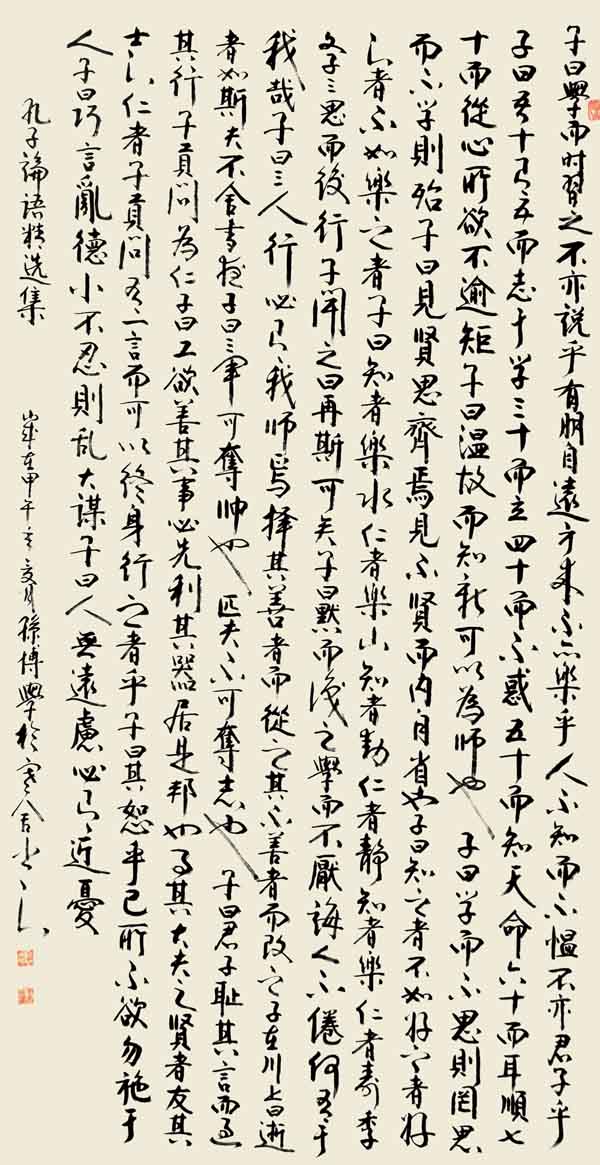 子曰學而时習之不亦説乎有朋自遠方来不亦樂乎人不知而不愠不亦君子乎
子曰吾十有五而志于学三十而立四十而不惑五十而知天命六十而耳順七
十而從心所欲不逾矩子曰温故而知新可以為師也子曰学而不思則罔思
而不学則殆子曰見賢思齊焉見不賢而内自省也子曰知之者不如好之者好
之者不如樂之者子曰知者樂水仁者樂山知者動仁者静知者樂仁者壽季
文子三思而後行子聞之曰再斯可矣子曰默而識之學而不厭誨人不倦何有于
我哉子曰三人行必有我師焉擇其善者而從之其不善者而改之子在川上曰逝
者如斯夫不舍晝夜子曰三軍可奪帅也匹夫不可奪志也子曰君子耻其言而过
其行子貢问為仁子曰工欲善其事必先利其器居是邦也事其大夫之賢者友其
士之仁者子貢问有一言而可以终身行之者乎子曰其恕乎己所不欲勿施于
人子曰巧言亂德小不忍則乱大謀子曰人無遠慮必有近憂
孔子論語精选集
歲在甲午之夏月孫博學於寒舍